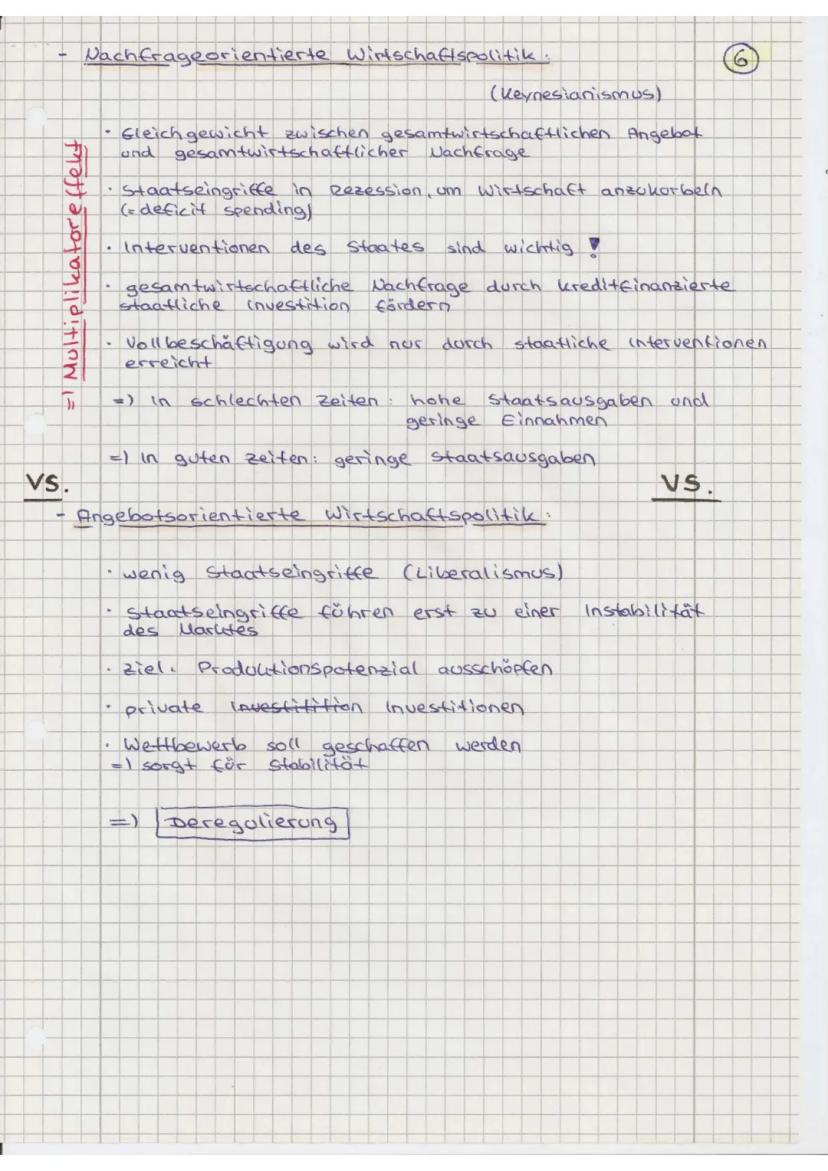 - Nachfrageorientierte Wirtschaftspolitik:
6
(Keynesianismus)
• Gleichgewicht zwischen gesamtwirtschaftlichen Angebot
und gesamtwirtschaftlicher Nachfrage
• Staatseingriffe in Rezession, um Wirtschaft anzukurbeln
(= deficit spending)
• Interventionen des Staates sind wichtig !
• gesamtwirtschaftliche Nachfrage durch kreditfinanzierte
staatliche Investition fördern
• Vollbeschäftigung wird nur durch staatliche Interventionen
erreicht
=> in schlechten Zeiten: hohe Staatsausgaben und
geringe Einnahmen
=> in guten Zeiten: geringe Staatsausgaben
=> Multiplikatoreffekt
vs. vs.
- Angebotsorientierte Wirtschaftspolitik:
• wenig Staatseingriffe (Liberalismus)
• Staatseingriffe führen erst zu einer Instabilität
des Marktes
• Ziel: Produktionspotenzial ausschöpfen
• private Investitition Investitionen
• Wettbewerb soll geschaffen werden
=> sorgt für Stabilität
=> Deregulierung